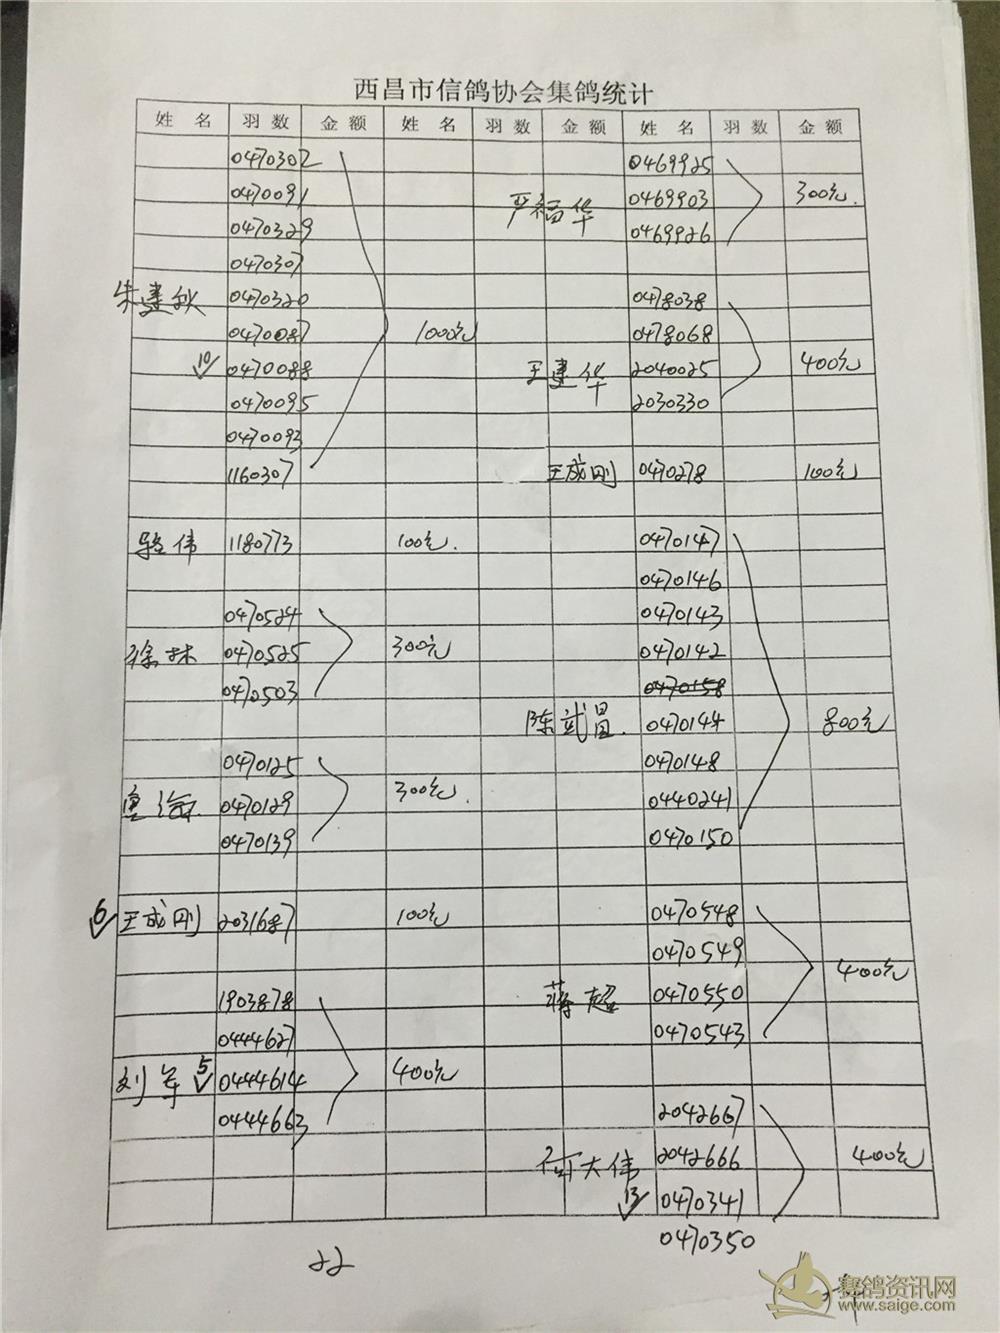 西昌市信鸽协会集鸽统计
姓 名 羽 数 金 额 姓 名 羽 数 金 额 姓 名 羽 数 金 额
0470302
0470091
0470329
0470307
朱建秋 0470320
0470087 1000元
10 0470088
0470095
0470093
1160307
骆伟 1180773 100元.
0470524
徐林 0470525 300元
0470503
0470125
唐海 0470129 300元.
0470139
6 王成刚 2031687 100元
1903878
0444627
刘军 5 0444614 400元
0444663
22
0469925
严福华 0469903 300元.
0469926
0478038
0478068
王建华 2040025 400元
2030330
王成刚 0470278 100元
0470147
0470146
0470143
0470142
0470158
陈武昌. 0470144 800元
0470148
0440241
0470150
0470548
0470549 400元
蒋超 0470550
0470543
2042667
何大伟 2042666 400元
13 0470341
0470350
赛鸽资讯网
www.saige.com